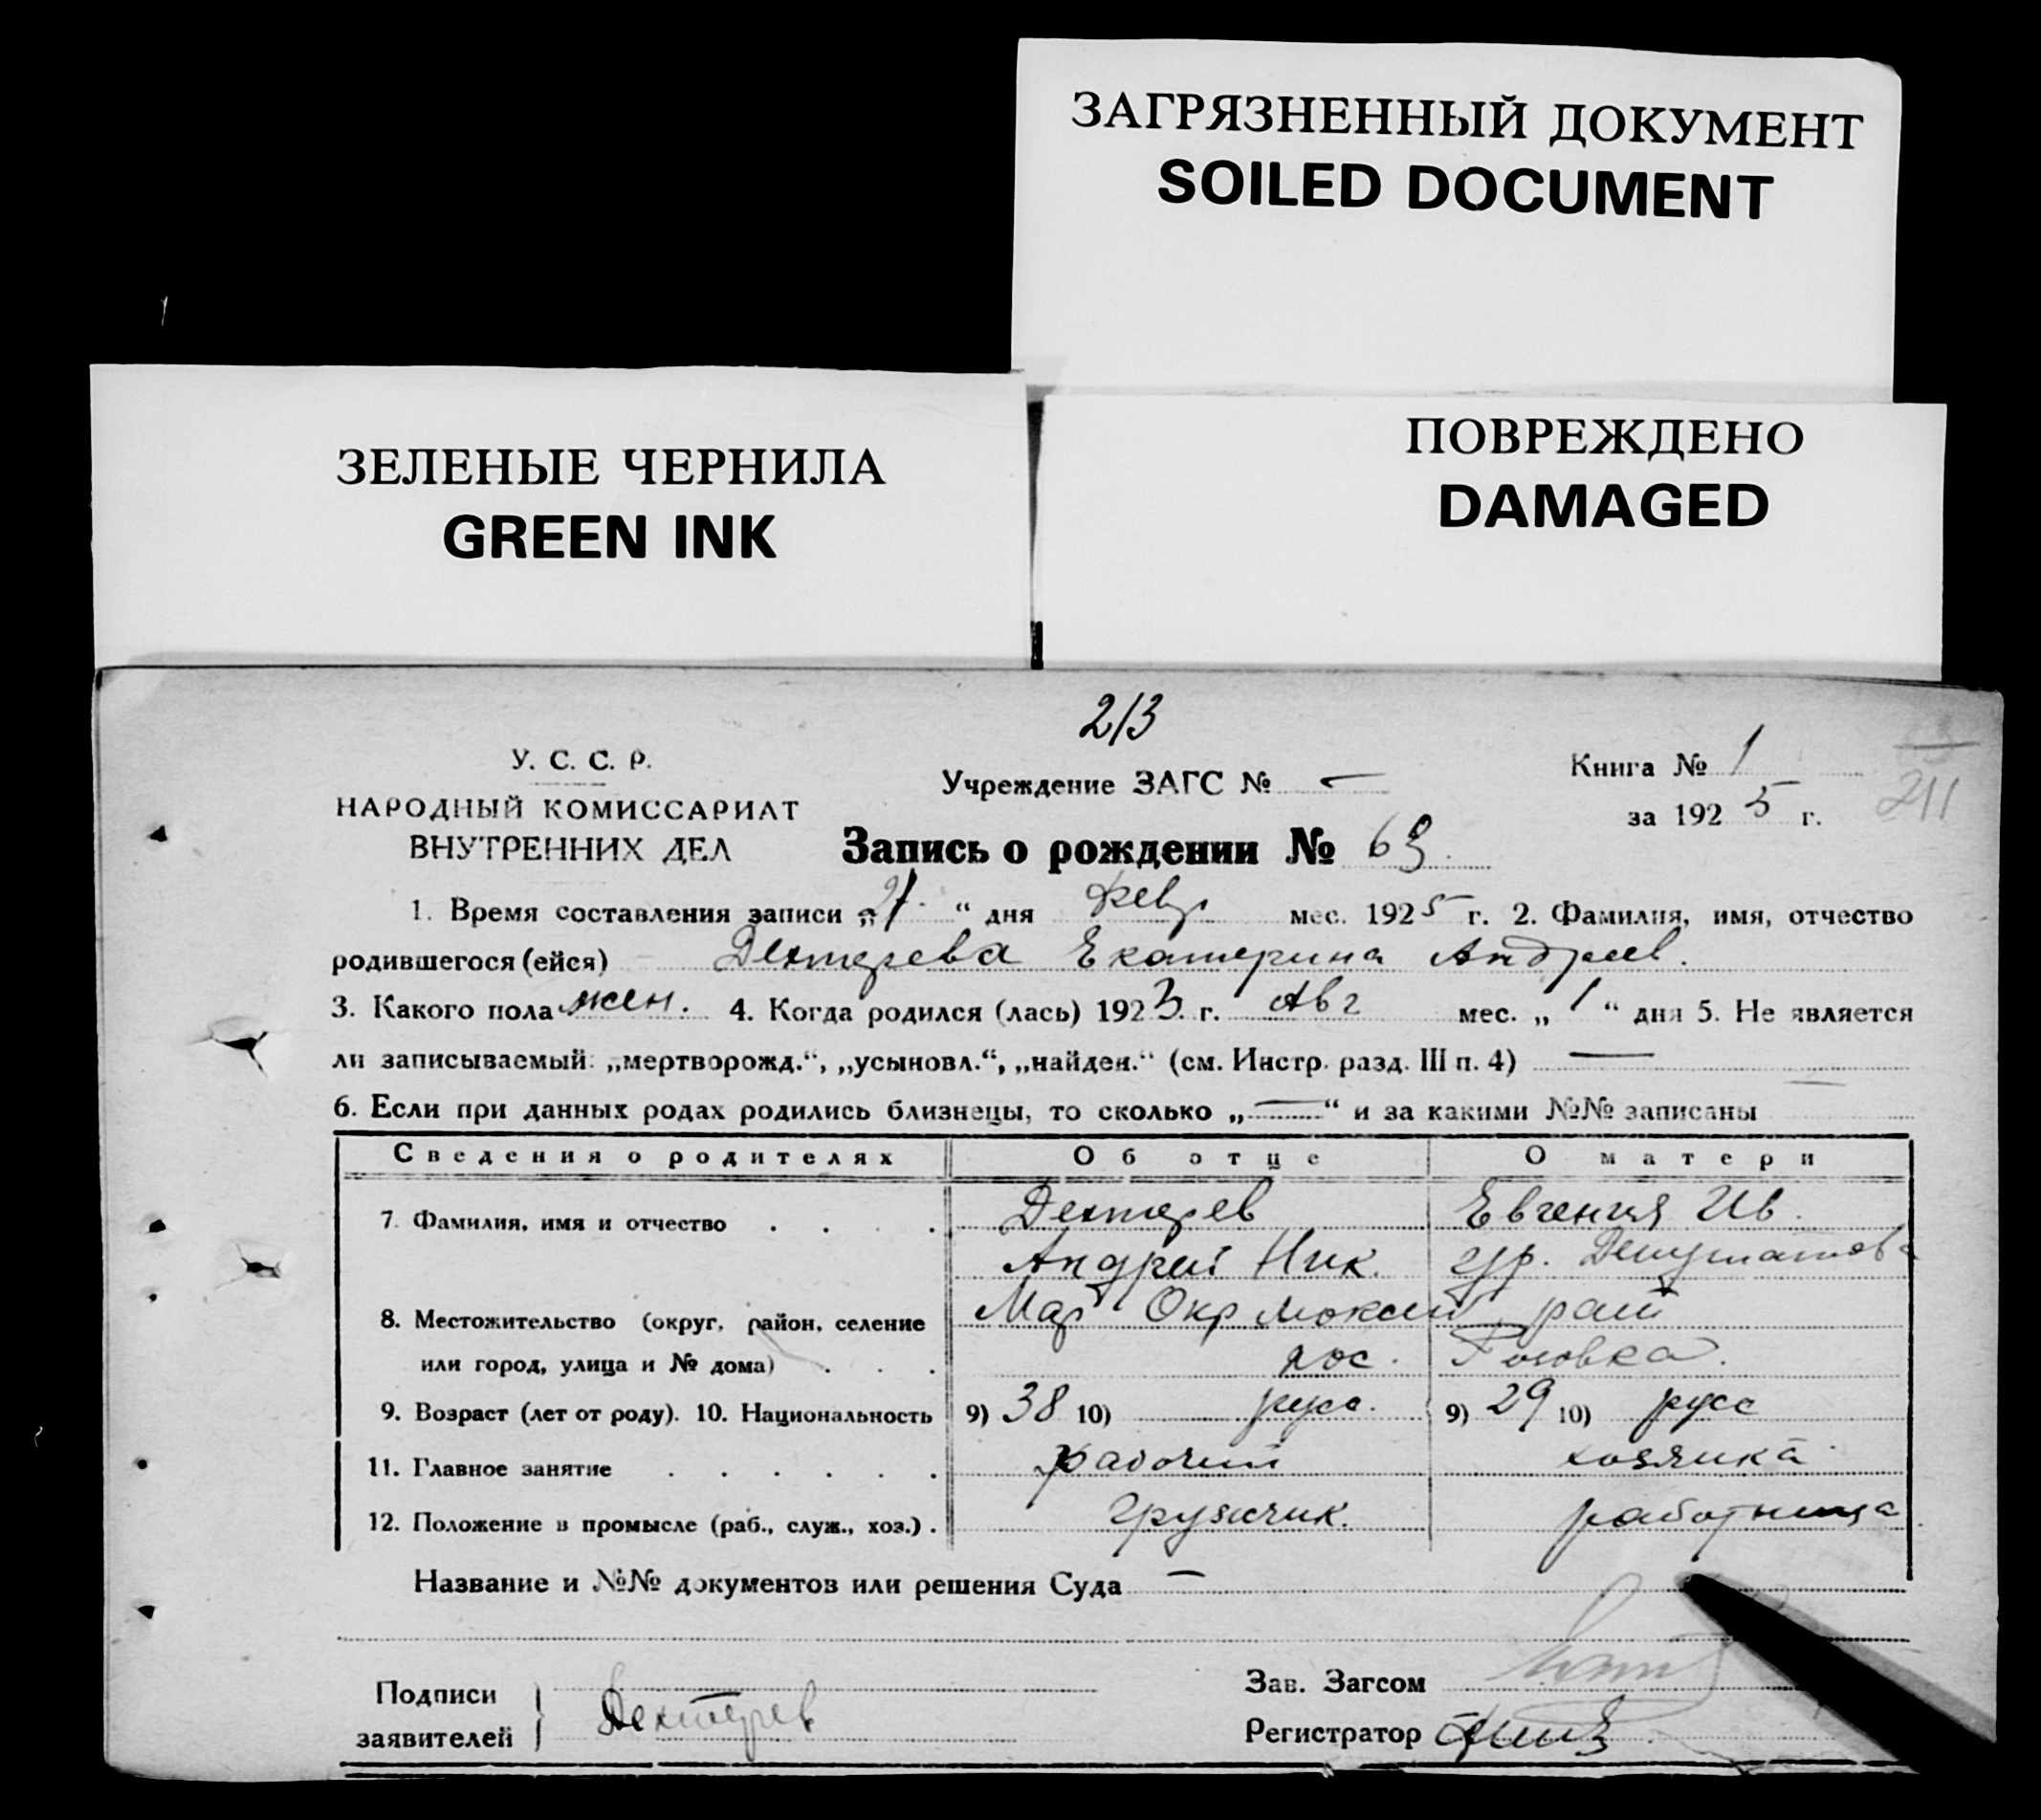 ЗАГРЯЗНЕННЫЙ ДОКУМЕНТ
SOILED DOCUMENT
ЗЕЛЕНЫЕ ЧЕРНИЛА
GREEN INK
ПОВРЕЖДЕНО
DAMAGED
213
У. С. С. Р.
НАРОДНЫЙ КОМИССАРИАТ
ВНУТРЕННИХ ДЕЛ
Учреждение ЗАГС № —
Книга № 1
за 1925 г.
211
Запись о рождении № 63
1. Время составления записи „21“ дня Февр мес. 1925 г. 2. Фамилия, имя, отчество
родившегося (ейся) Дехтерева Екатерина Андреев.
3. Какого пола жен. 4. Когда родился (лась) 1923 г. Авг мес. „1“ дня 5. Не является
ли записываемый: „мертворожд.“, „усыновл.“, „найден.“ (см. Инстр. разд. III п. 4) —
6. Если при данных родах родились близнецы, то сколько „—“ и за какими №№ записаны
Сведения о родителях Об отце О матери
7. Фамилия, имя и отчество . . . . Дехтерев Евгения Ив.
Андрей Ник. гр.
8. Местожительство (округ, район, селение Мар Окр рай
или город, улица и № дома) . . . пос. Розовка.
9. Возраст (лет от роду). 10. Национальность 9) 38 10) русс. 9) 29 10) русс
11. Главное занятие . . . . . . рабочий хозяйка
12. Положение в промысле (раб., служ., хоз.) . грузчик. работница
Название и №№ документов или решения Суда —
Подписи
заявителей
Дехтерев
Зав. Загсом
Регистратор